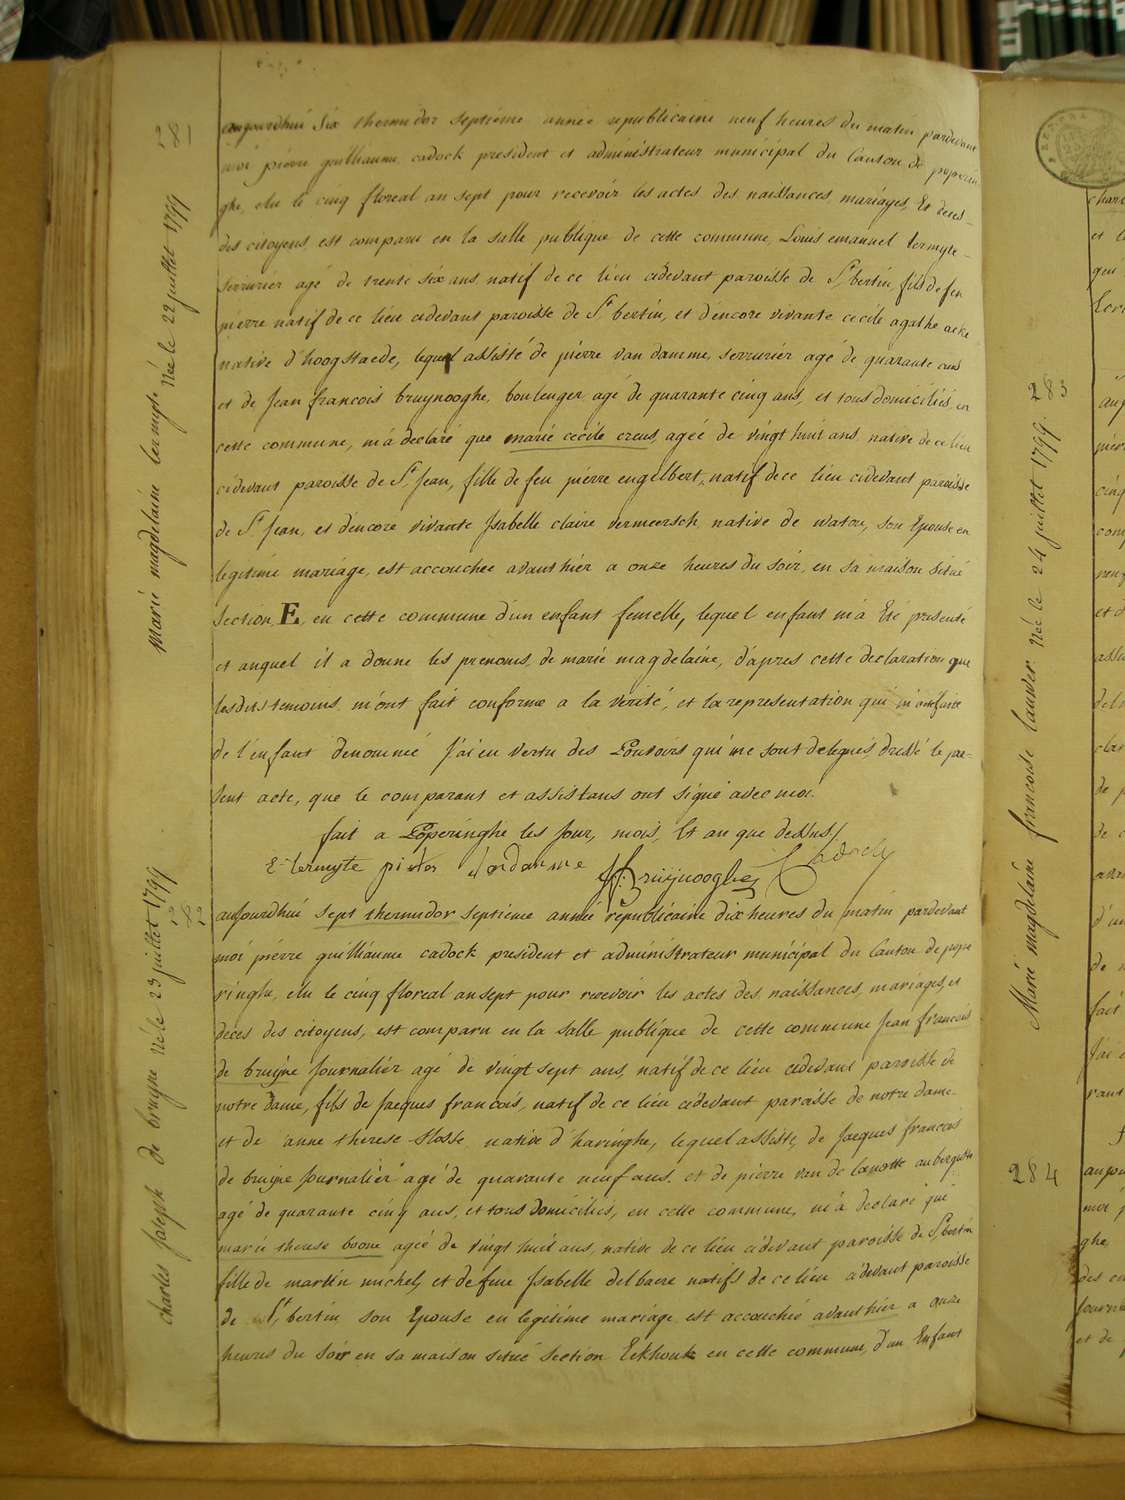 281
Marie magdelaine lermyte née le 22 juillet 1799
aujourdhui six thermidor septiéme année republicaine neuf heures du matin pardevant
moi piérre guilliaume cadock president et administrateur municipal du Canton de poperin
ghe, elu le cinq floreal an sept pour recevoir les actes des naissances, mariages, Et deces
des citoyens est comparu en la salle publique de cette commune, Louis emanuel lermyte
serrurier agé de trente six ans natif de ce lieu cidevant paroisse de St bertin, fils de feu
pierre natif de ce lieu cidevant paroisse de St bertin, et d'encore vivante cecile agathe
native d'hoogstaede, lequel assisté de piérre van damme, serruriér agé de quarante ans
et de Jean francois bruynooghe, boulenger agé de quarante cinq ans, et tous domiciliés en
cette commune, m'a declaré que marie cecile creus, agée de vingt huit ans native de ce lieu
cidevant paroisse de St Jean, fille de feu pierre engelbert, natif de ce lieu cidevant paroisse
de St Jean, et d'encore vivante Isabelle claire vermeersch native de watou, son Epouse en
legitime mariage, est accouchée avanthiér a onze heures du soir, en sa maison situé
section E, en cette commune d'un enfant femelle, lequel enfant m'a Eté presenté
et auquel il a donne les prenoms de marie magdelaine, d'apres cette declaration que
lesdits temoins m'ont fait conforme a la verité, et la representation qui m'a été faite
de l'enfant denommé J'ai en vertu des Pouvoirs qui me sont delegués, dressé le pre-
sent acte, que le comparant et assistans ont signé avec moi.
fait a Poperinghe les Jour, mois, Et an que dessus/
E lermyte pieter Vandamme JF Bruijnooghe Cadock
282
charles Joseph de bruyne né le 23 juillet 1799
aujourdhui sept thermidor septieme année republicaine dix heures du matin pardevant
moi piérre guilliaume cadock president et administrateur municipal du Canton de pope
ringhe, elu le cinq floreal an sept pour recevoir les actes des naissances, mariages, et
deces des citoyens, est comparu en la salle publique de cette commune Jean francois
de bruijne Journaliér agé de vingt sept ans, natif de ce lieu cidevant paroisse de
notre dame, fils de Jacques francois, natif de ce lieu cidevant paroisse de notre dame
et de anne therese Hosse native d'haringhe, lequel assisté, de Jacques francois
de bruijne Journaliér agé de quarante neuf ans, et de piérre van de lanotte aubergiste
agé de quarante cinq ans, et tous domiciliés, en cette commune, m'a declaré que
marie therese boone agée de vingt huit ans, native de ce lieu cidevant paroisse de St bertin
fille de martin michel, et de feue Isabelle delbaere natifs de ce lieu cidevant paroisse
de St bertin son Epouse en legitime mariage est accouchée avanthiér a onze
heures du soir en sa maison situé section Eekhouk en cette commune, d'un Enfant
283
Marie magdelaine francoise lauwer née le 24 juillet 1799
284